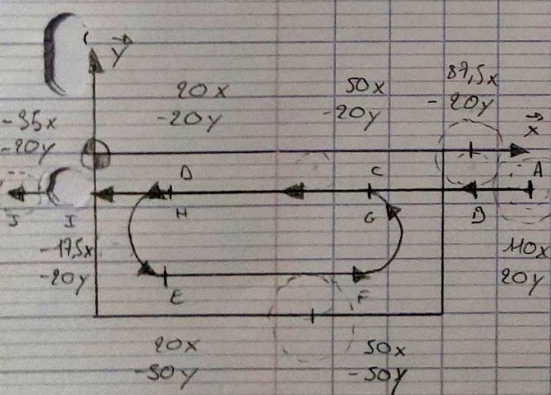 y
87,5x
-20y
20x
-20y
50x
-20y
-35x
-20y
x
D
C
A
J
I
H
G
B
-17,5x
-20y
110x
20y
E
F
20x
-50y
50x
-50y